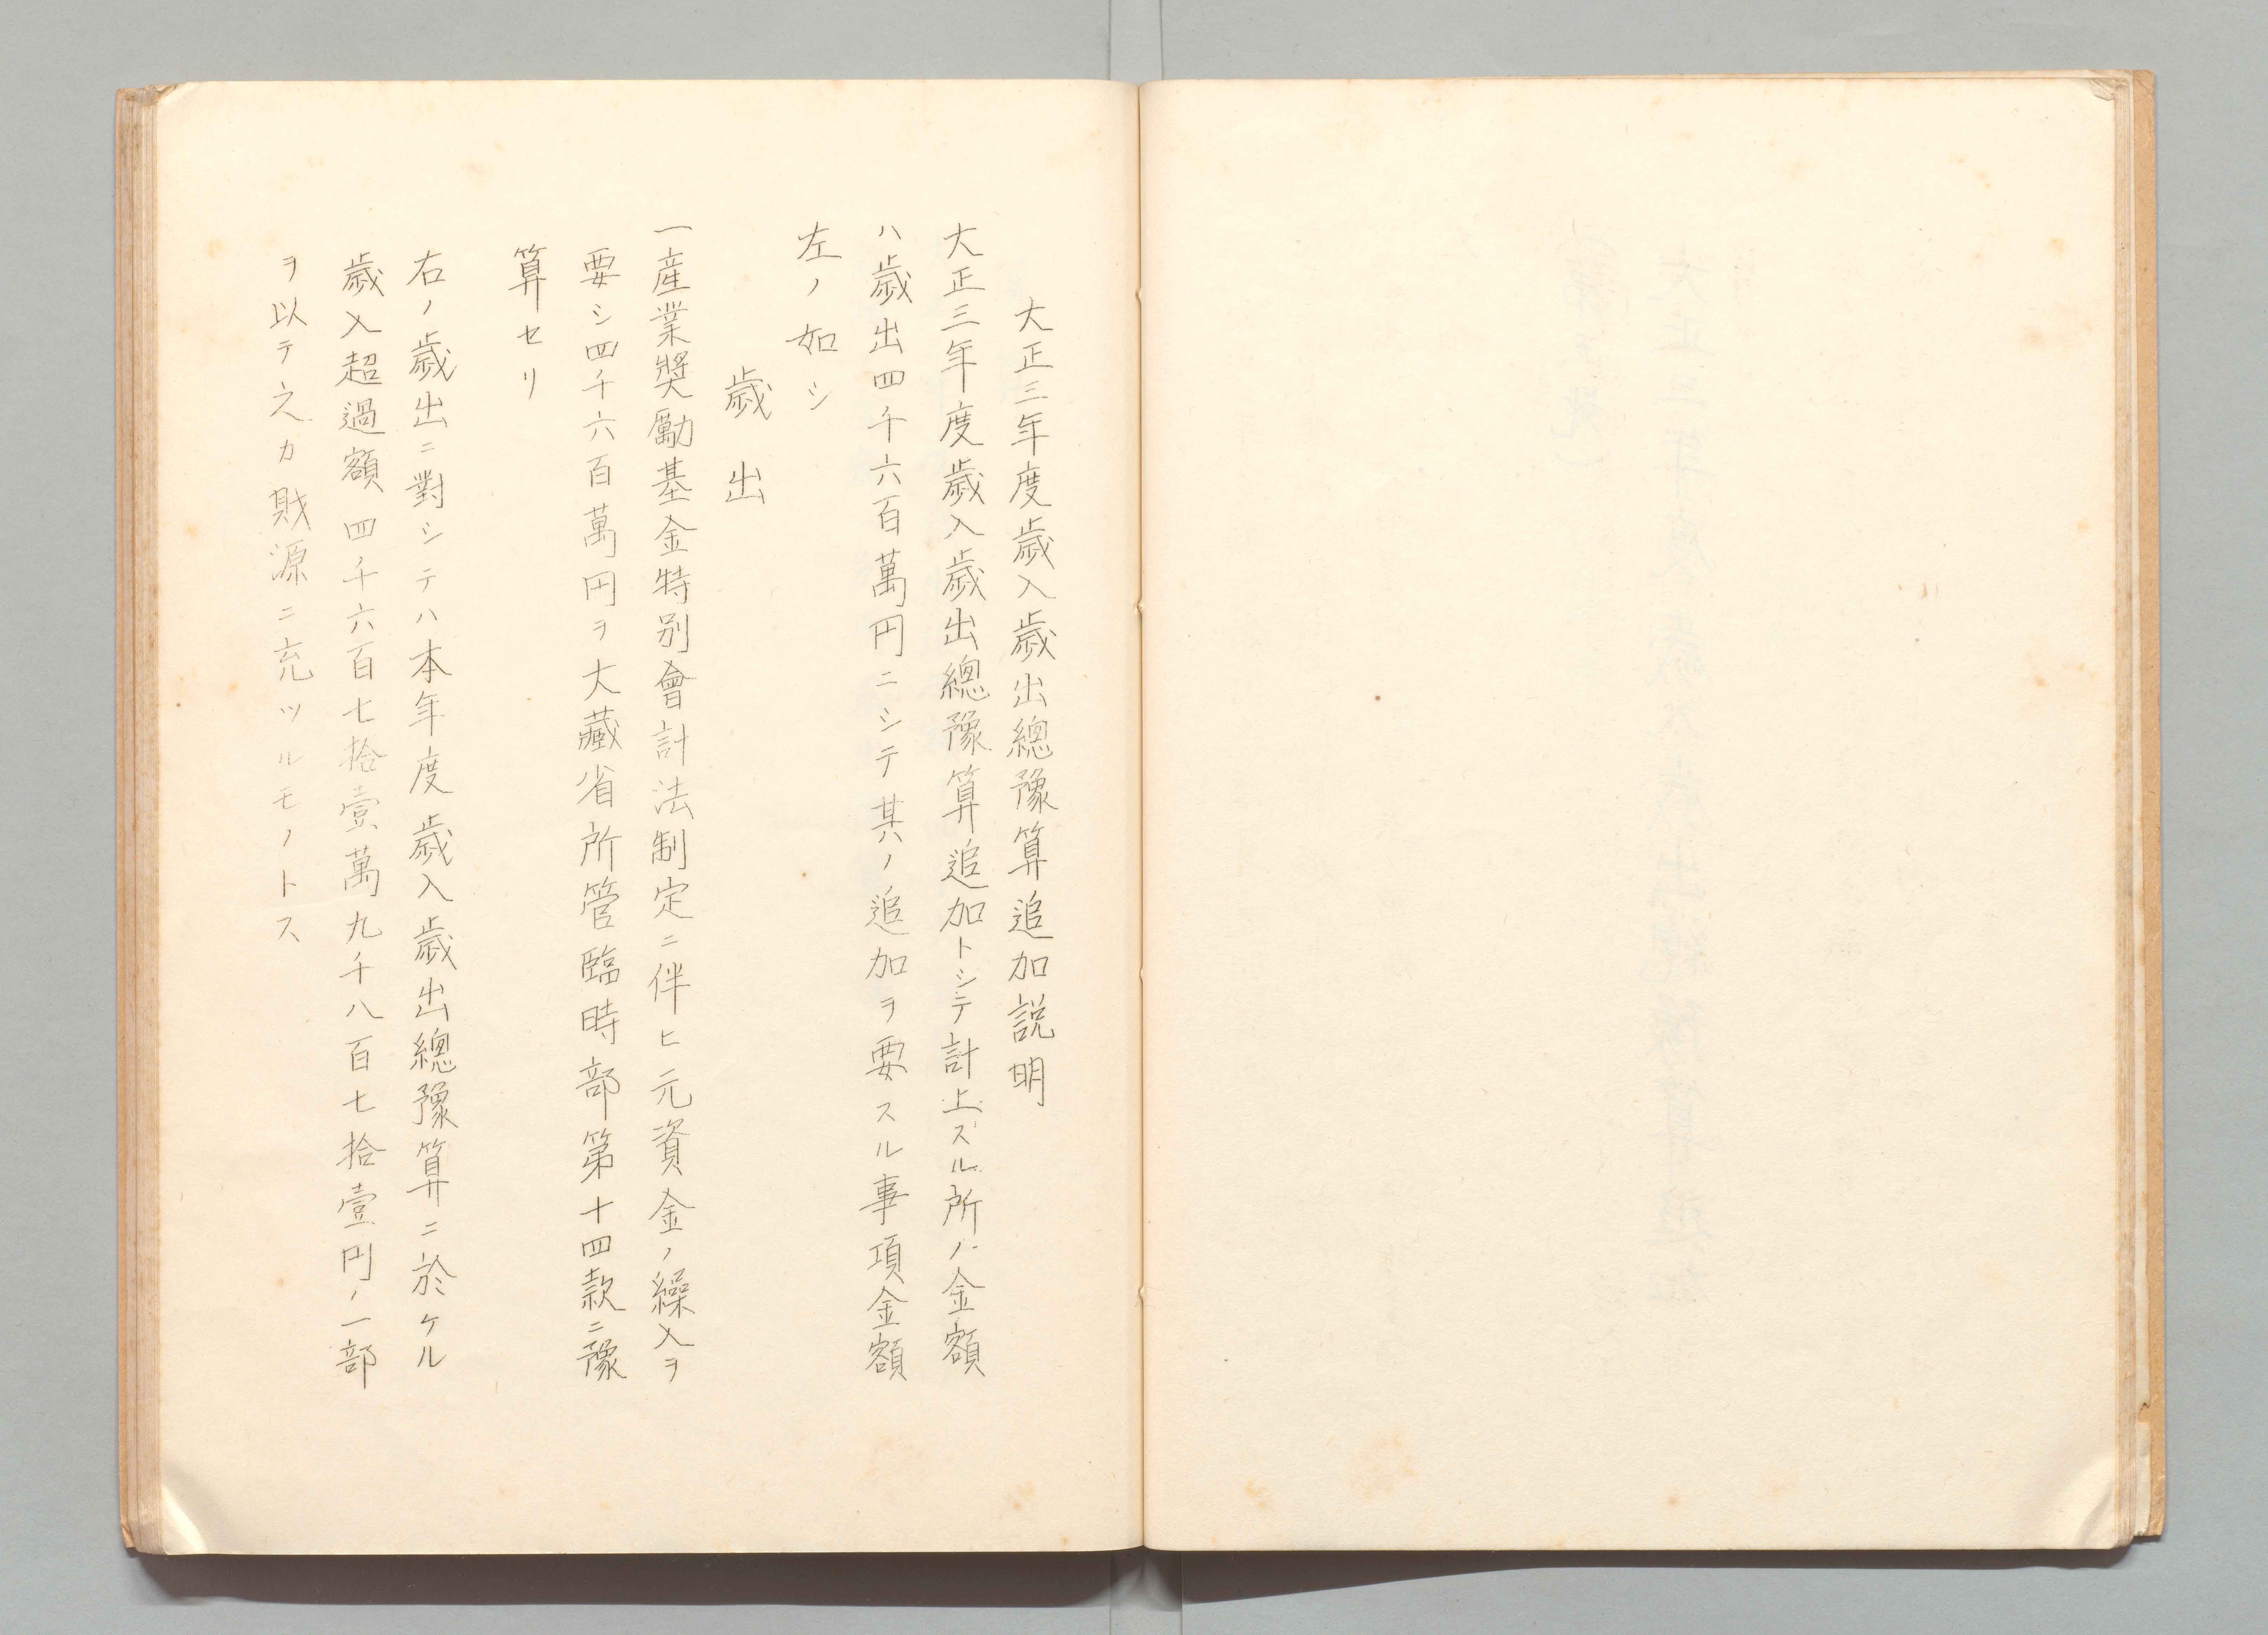 大正三年度歳入歳出總豫算追加説明
大正三年度歳入歳出總豫算追加トシテ計上スル所ノ金額
ハ歳出四千六百萬円ニシテ其ノ追加ヲ要スル事項金額
左ノ如シ
歳出
一産業奬勵基金特別會計法制定ニ伴ヒ元資金ノ繰入ヲ
要シ四千六百萬円ヲ大藏省所管臨時部第十四款ニ豫
算セリ
右ノ歳出ニ對シテハ本年度歳入歳出總豫算ニ於ケル
歳入超過額四千六百七拾壹萬九千八百七拾壹円ノ一部
ヲ以テ之カ財源ニ充ツルモノトス